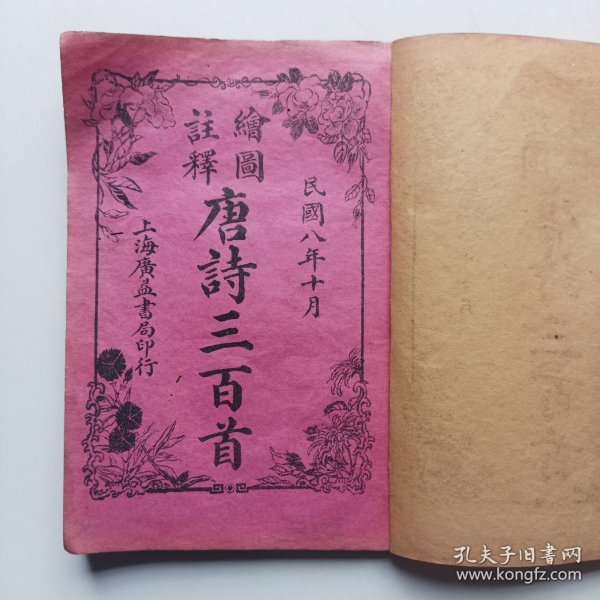 民國八年十月
繪圖
註釋
唐詩三百首
上海廣益書局印行
孔夫子旧書网
www.kongfz.com